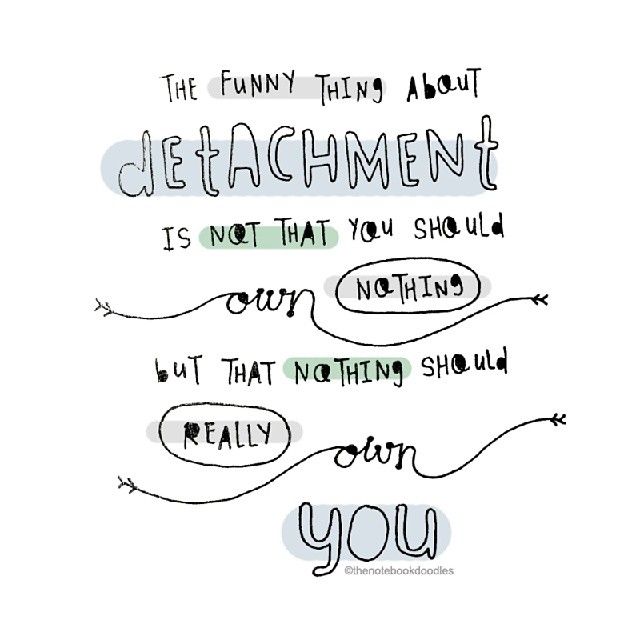 THE FUNNY THING AbOUT
dEtACHMENt
IS NOT THAT YOU SHOULd
own NOTHING
bUT THAT NOTHING SHOULd
REALLY own
YOU
©thenotebookdoodles